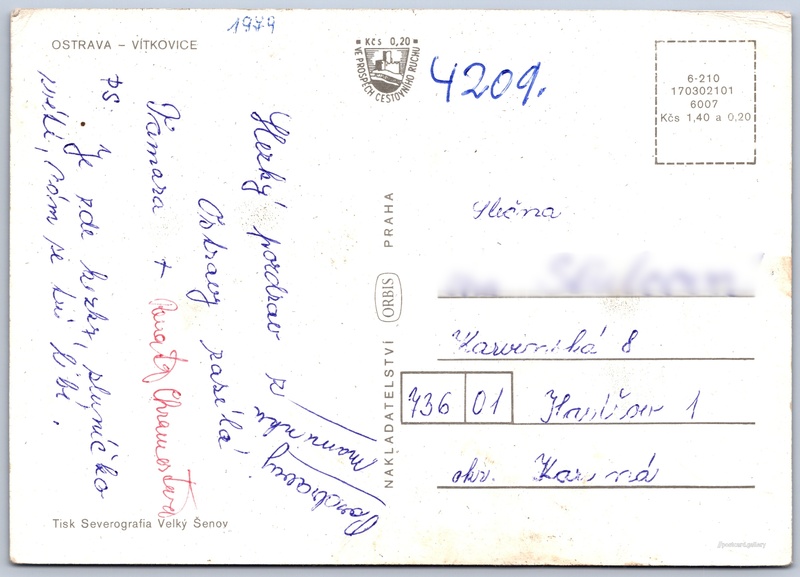 1979
OSTRAVA – VÍTKOVICE
Kčs 0,20
VE PROSPĚCH CESTOVNÍHO RUCHU
4209.
6-210
170302101
6007
Kčs 1,40 a 0,20
Hezký pozdrav z
Ostravy zasílá
Tamara + Renata Chramostová
PS: Je zde hezky, sluníčko
svítí, vám se tu líbí.
Pozdravuj
maminku
NAKLADATELSTVÍ ORBIS PRAHA
Slečna
Karvinská 8
736 01 Havířov 1
okr. Karviná
Tisk Severografia Velký Šenov
postcard.gallery